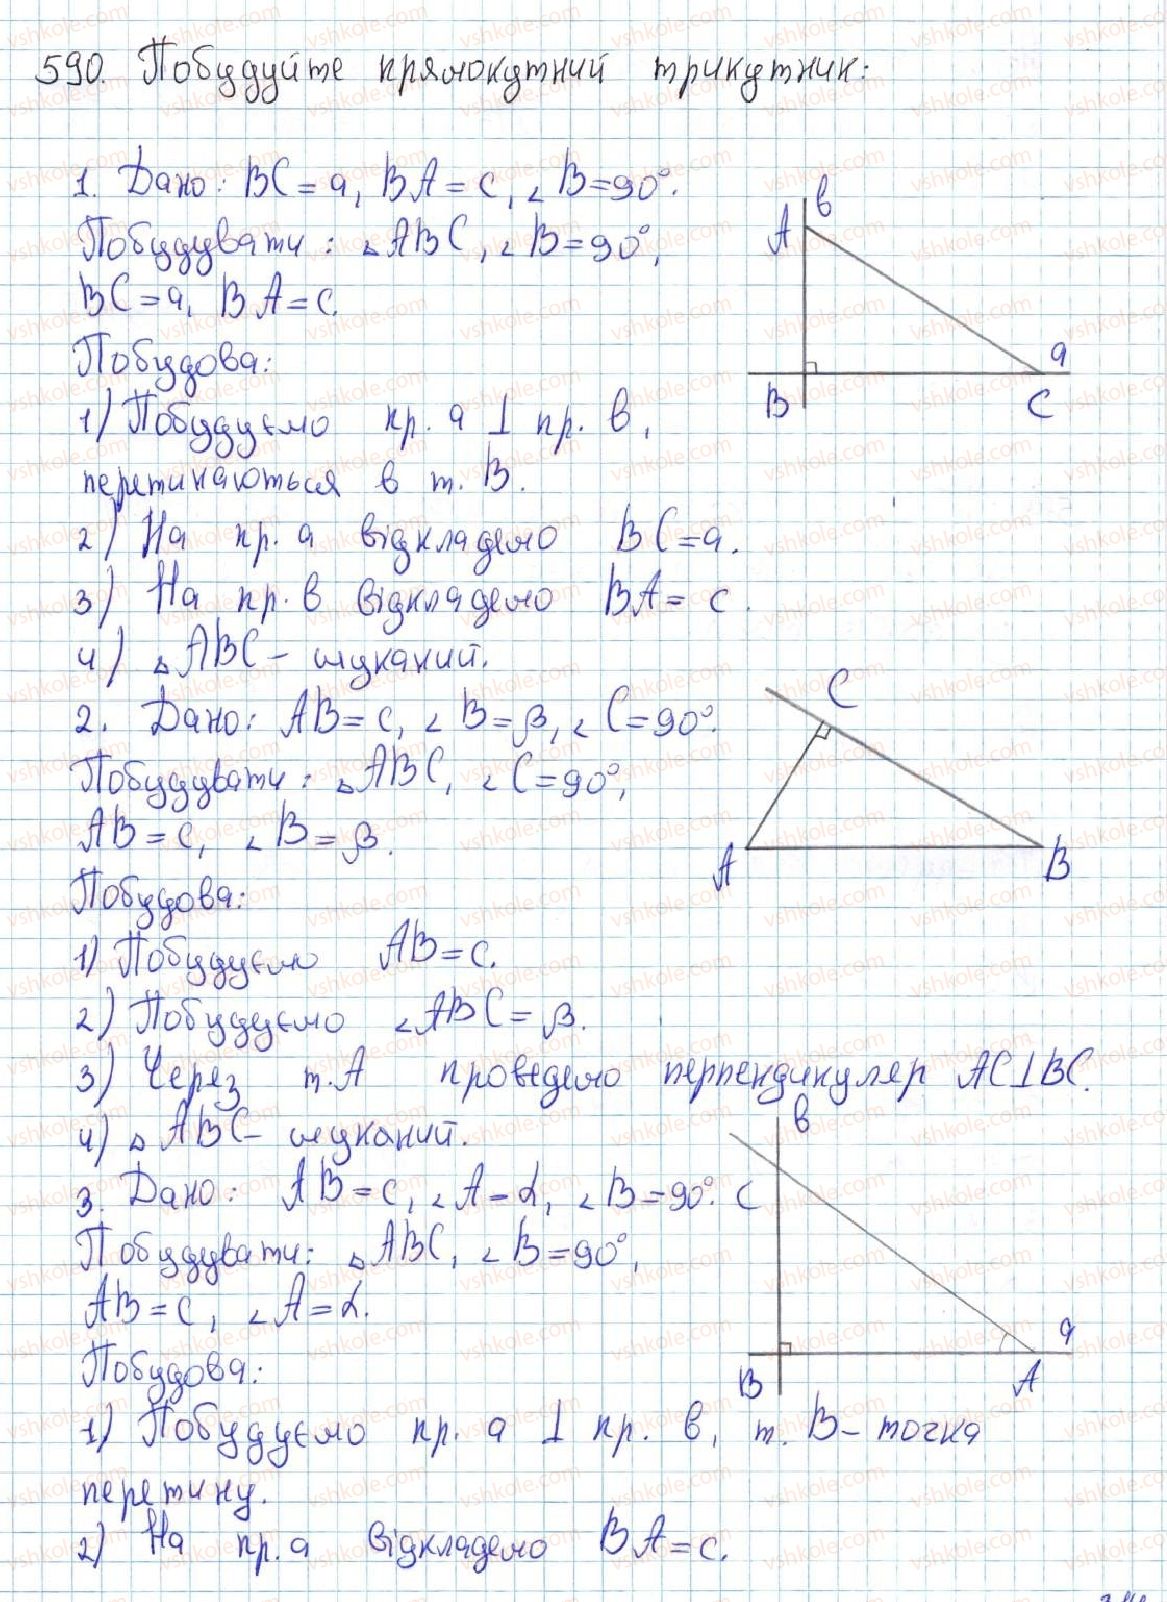 590. Побудуйте прямокутний трикутник:
1. Дано: BC = a, BA = c, ∠B = 90°.
Побудувати: △ABC, ∠B = 90°,
BC = a, BA = c.
Побудова:
1) Побудуємо пр. a ⊥ пр. b,
перетинаються в т. B.
2) На пр. a відкладемо BC = a.
3) На пр. b відкладемо BA = c.
4) △ABC – шуканий.
A b
B C a
2. Дано: AB = c, ∠B = β, ∠C = 90°.
Побудувати: △ABC, ∠C = 90°,
AB = c, ∠B = β.
Побудова:
1) Побудуємо AB = c.
2) Побудуємо ∠ABC = β.
3) Через т. A проведемо перпендикуляр AC⊥BC.
4) △ABC – шуканий.
C
A B
3. Дано: AB = c, ∠A = α, ∠B = 90°.
Побудувати: △ABC, ∠B = 90°,
AB = c, ∠A = α.
Побудова:
b
C
B A a
1) Побудуємо пр. a ⊥ пр. b, т. B – точка
перетину.
2) На пр. a відкладемо BA = c.